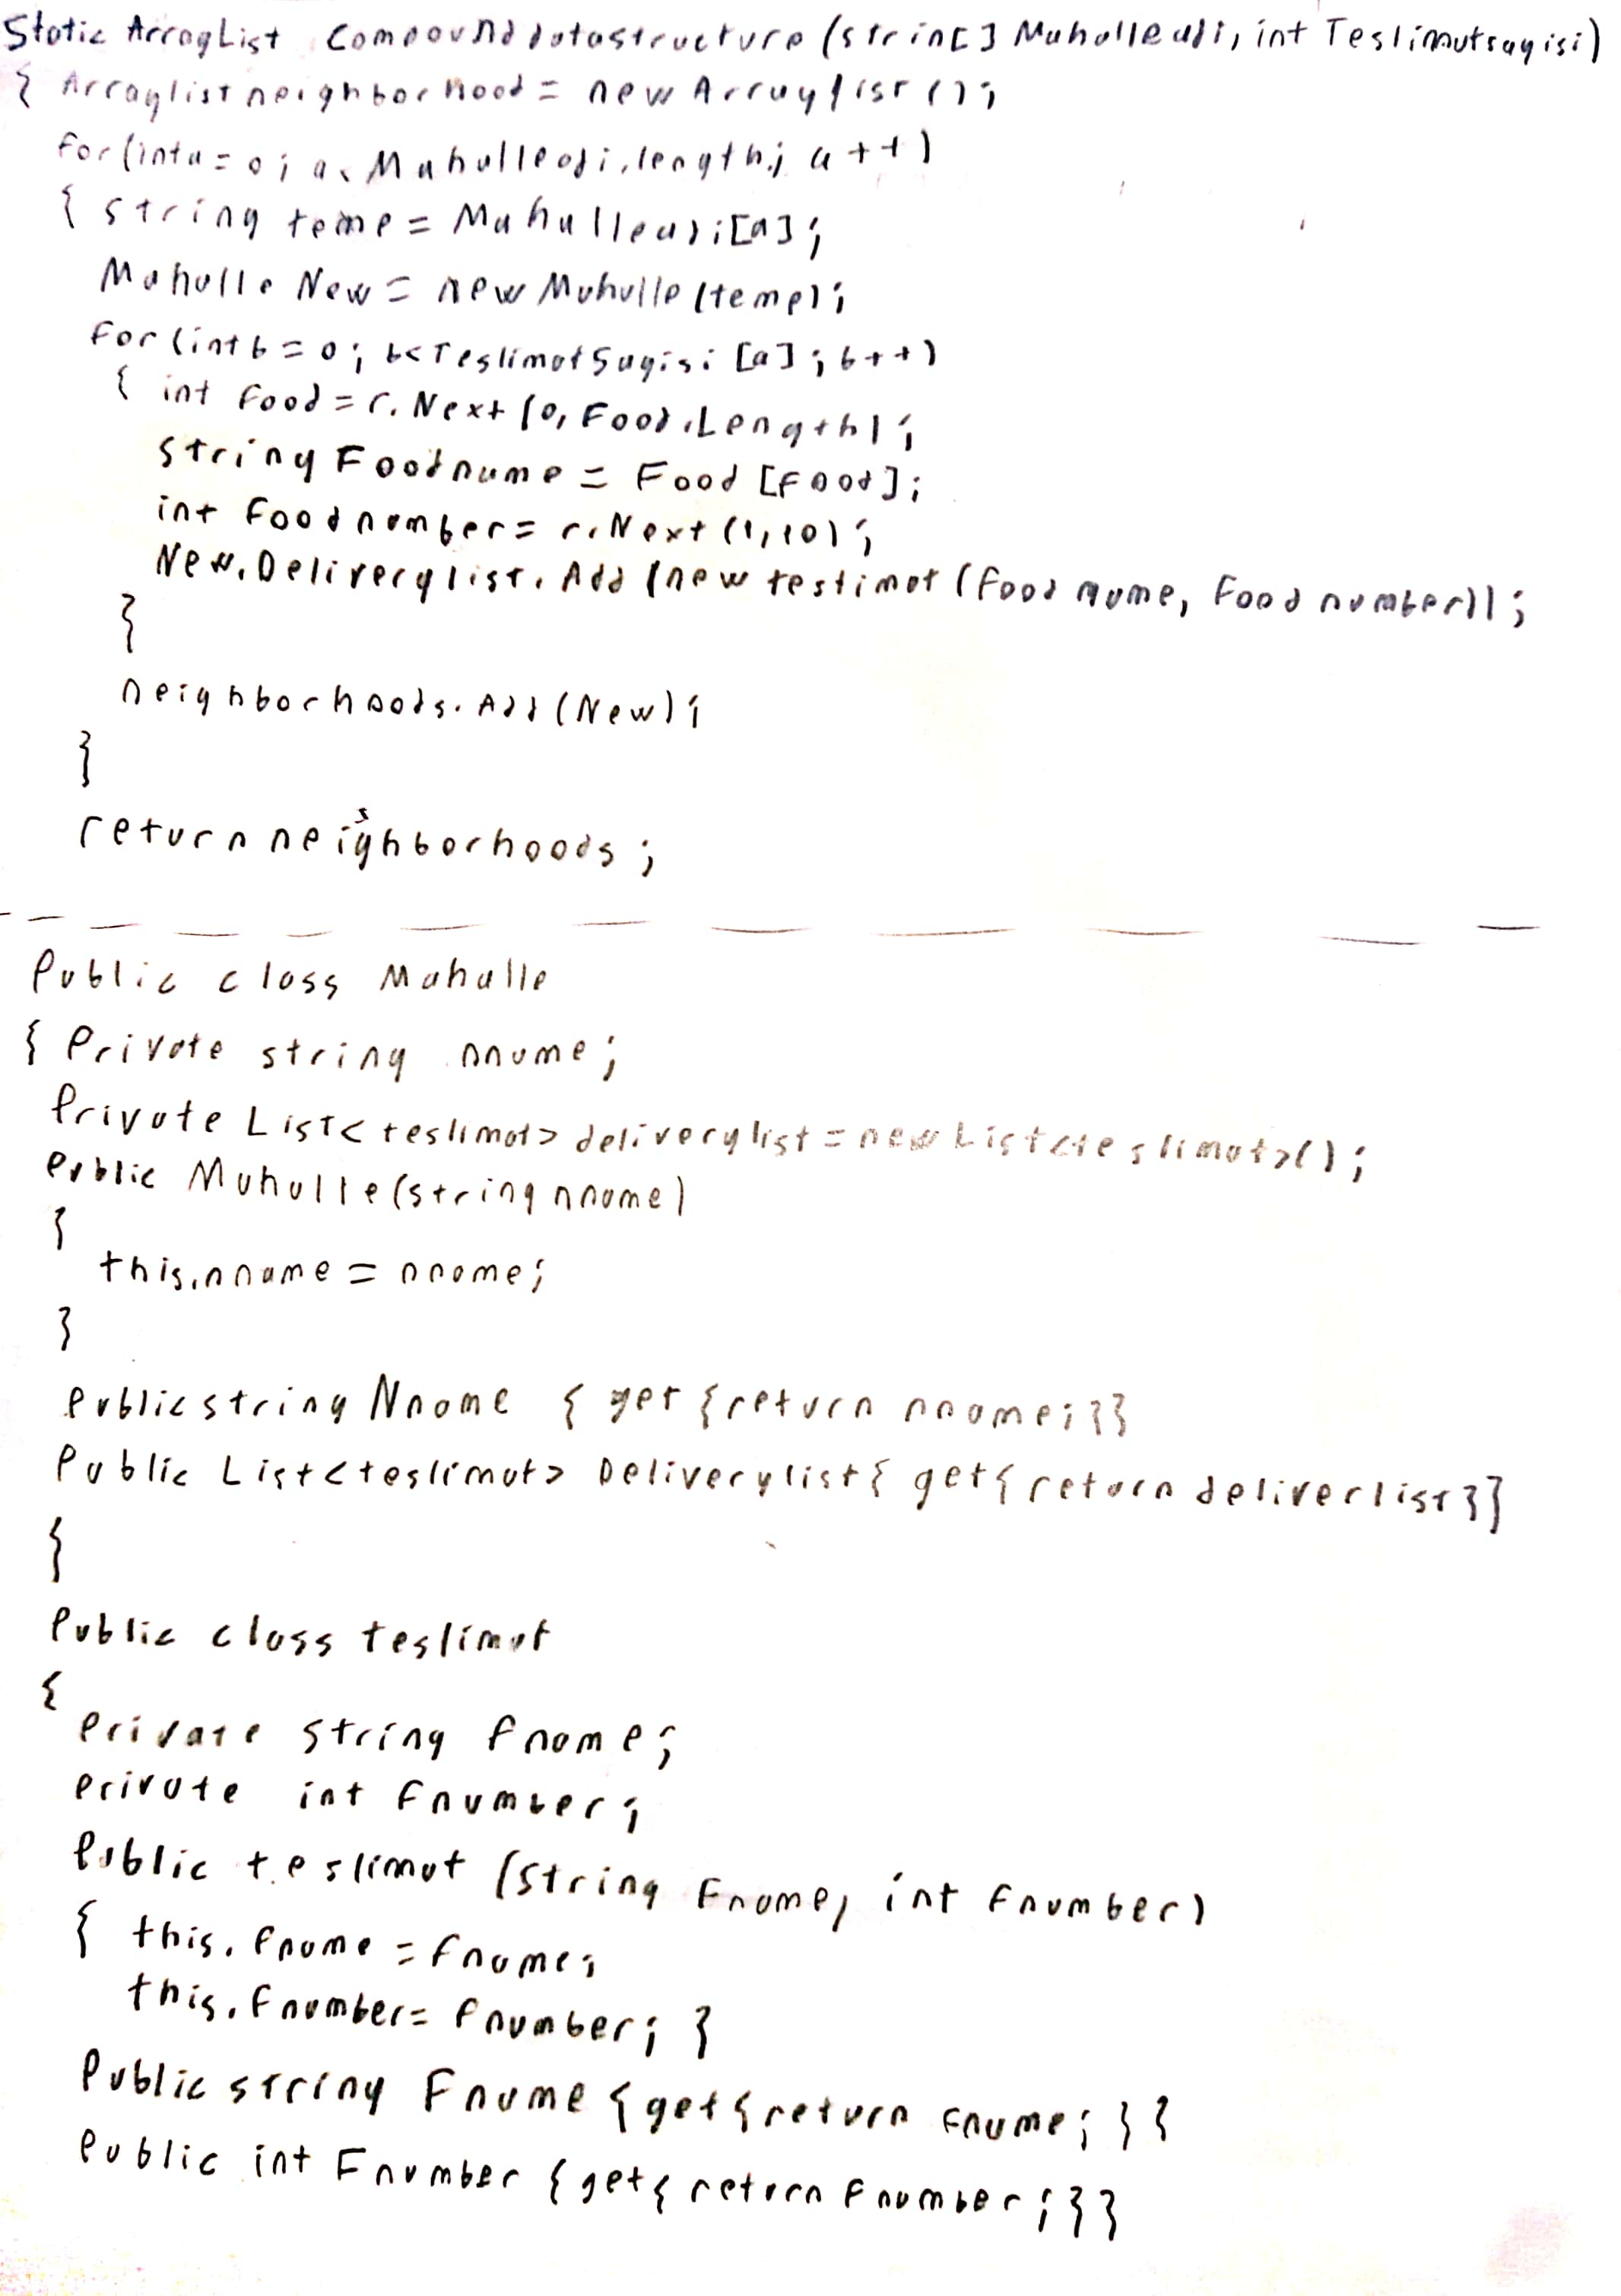 Static ArrayList Compounddatastructure (string[] Mahalleadi, int Teslimatsayisi)
{ Arraylist neighborhood = new Arraylist ();
for (int a = 0 ; a < Mahalleadi.length; a ++)
{ string temp = Mahalleadi[a];
Mahalle New = new Mahalle (temp);
for (int b = 0 ; b < TeslimatSayisi [a] ; b ++)
{ int food = r. Next (0, Food.Length) ;
string Foodname = Food [food];
int foodnumber = r.Next (1,10) ;
New.Deliverylist. Add (new teslimat (food name, Food number)) ;
}
neighborhoods. Add (New) ;
}
return neighborhoods ;
Public class Mahalle
{ Private string nname ;
Private List< teslimat> deliverylist = new List<teslimat>() ;
Public Mahalle (string nname)
{
this.nname = nname;
}
Public string Nname { get {return nname;}}
Public List<teslimat> Deliverylist{ get{ return deliverlist }}
{
Public class teslimat
{
Private string fname ;
Private int fnumber ;
Public teslimat (String Fname, int fnumber)
{ this. fname = fname;
this. fnumber = fnumber; }
Public string Fname {get{return fname; } }
Public int Fnumber {get{ return fnumber ;}}